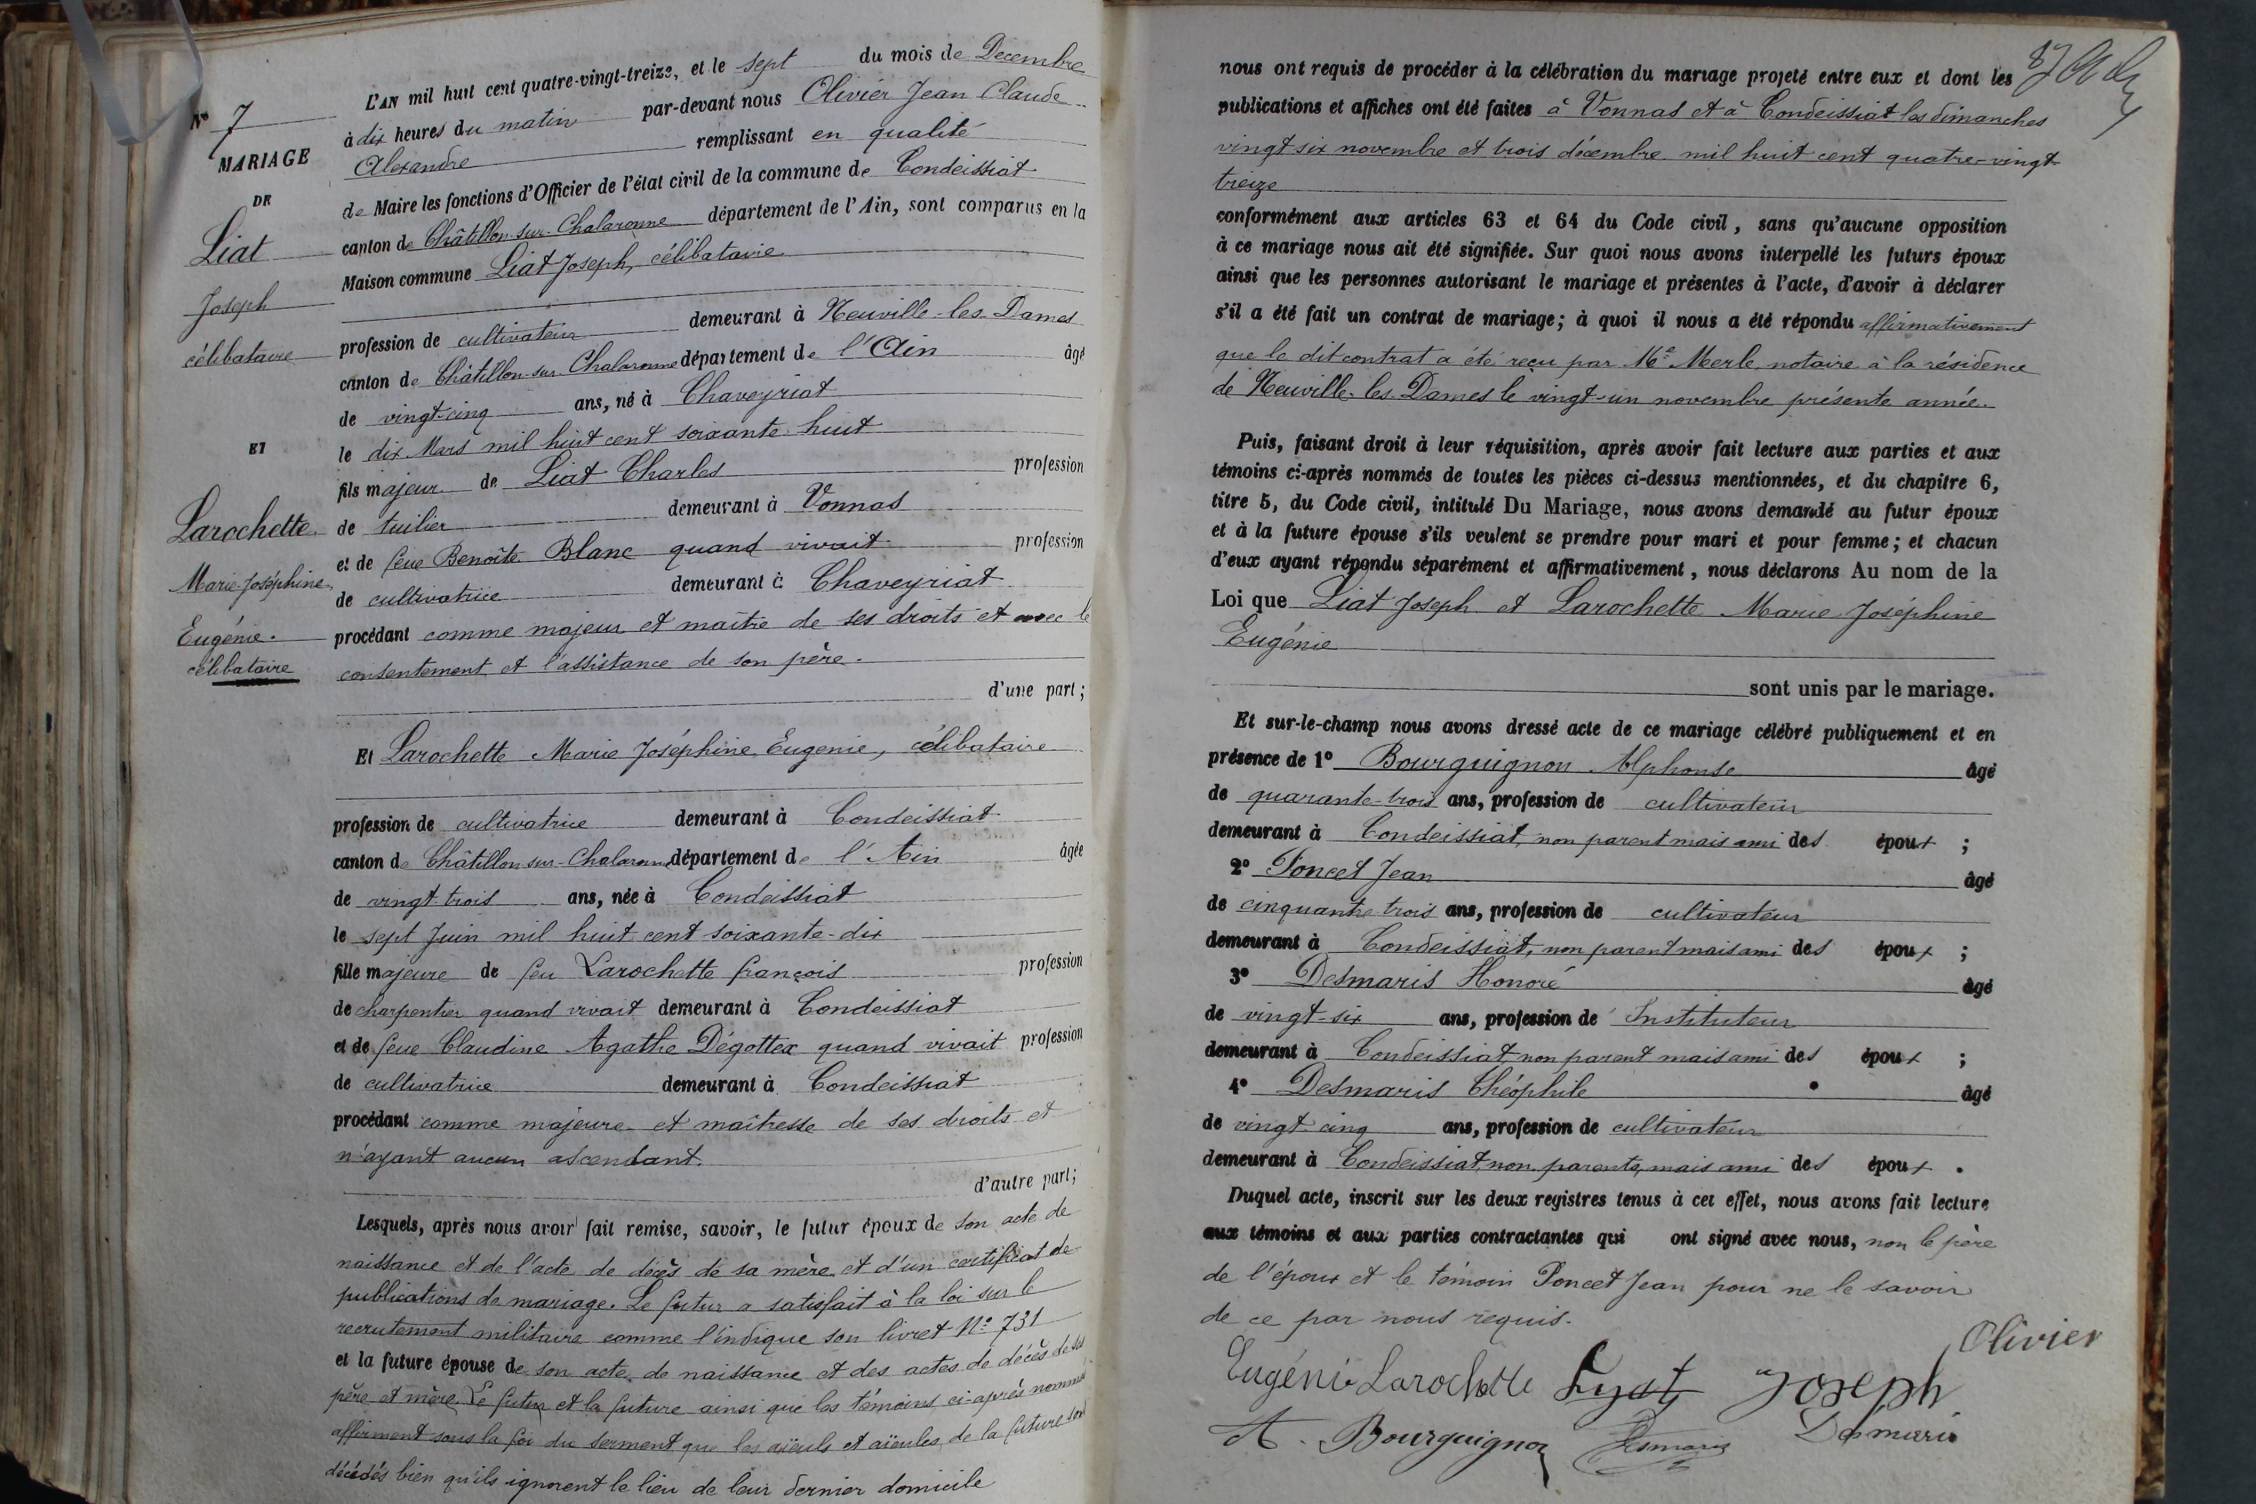 L'AN mil huit cent quatre-vingt-treize, et le sept du mois de Decembre
à dix heures du matin par-devant nous Olivier Jean Claude
Alexandre remplissant en qualité
de Maire les fonctions d'Officier de l'état civil de la commune de Condeissiat
canton de Châtillon-sur-Chalaronne département de l'Ain, sont comparus en la
Maison commune Liat Joseph, célibataire
profession de cultivateur demeurant à Neuville-les-Dames
canton de Châtillon-sur-Chalaronne département de l'Ain âgé
de vingt-cinq ans, né à Chaveyriat
le dix Mars mil huit cent soixante-huit
fils majeur de Liat Charles profession
de tuilier demeurant à Vonnas
et de feue Benoîte Blanc quand vivait profession
de cultivatrice demeurant à Chaveyriat
procédant comme majeur et maître de ses droits et avec le
consentement et l'assistance de son père.
d'une part;
Et Larochette Marie Joséphine Eugenie, célibataire
profession de cultivatrice demeurant à Condeissiat
canton de Châtillon-sur-Chalaronne département de l'Ain âgée
de vingt-trois ans, née à Condeissiat
le sept Juin mil huit cent soixante-dix
fille majeure de feu Larochette françois profession
de charpentier quand vivait demeurant à Condeissiat
et de feue Claudine Agathe Dégottex quand vivait profession
de cultivatrice demeurant à Condeissiat
procédant comme majeure et maîtresse de ses droits et
n'ayant aucun ascendant.
d'autre part;
Lesquels, après nous avoir fait remise, savoir, le futur époux de son acte de
naissance et de l'acte de décès de sa mère et d'un certificat de
publications de mariage. Le futur a satisfait à la loi sur le
recrutement militaire comme l'indique son livret No 731
et la future épouse de son acte de naissance et des actes de décès de ses
père et mère. Le futur et la future ainsi que les témoins ci-après nommés
affirment sous la foi du serment que les aïeuls et aïeules de la future sont
décédés bien qu'ils ignorent le lieu de leur dernier domicile
No 7
MARIAGE
DE
Liat
Joseph
célibataire
ET
Larochette
Marie-Joséphine
Eugénie.
célibataire
87
nous ont requis de procéder à la célébration du mariage projeté entre eux et dont les
publications et affiches ont été faites à Vonnas et à Condeissiat les dimanches
vingt six novembre et trois décembre mil huit cent quatre-vingt
treize
conformément aux articles 63 et 64 du Code civil, sans qu'aucune opposition
à ce mariage nous ait été signifiée. Sur quoi nous avons interpellé les futurs époux
ainsi que les personnes autorisant le mariage et présentes à l'acte, d'avoir à déclarer
s'il a été fait un contrat de mariage; à quoi il nous a été répondu affirmativement
que le dit contrat a été reçu par Me Merle, notaire à la résidence
de Neuville-les-Dames le vingt-un novembre présente année.
Puis, faisant droit à leur réquisition, après avoir fait lecture aux parties et aux
témoins ci-après nommés de toutes les pièces ci-dessus mentionnées, et du chapitre 6,
titre 5, du Code civil, intitulé Du Mariage, nous avons demandé au futur époux
et à la future épouse s'ils veulent se prendre pour mari et pour femme; et chacun
d'eux ayant répondu séparément et affirmativement, nous déclarons Au nom de la
Loi que Liat Joseph et Larochette Marie Joséphine
Eugénie
sont unis par le mariage.
Et sur-le-champ nous avons dressé acte de ce mariage célébré publiquement et en
présence de 1° Bourguignon Alphonse âgé
de quarante-trois ans, profession de cultivateur
demeurant à Condeissiat, non parent mais ami des époux ;
2° Poncet Jean âgé
de cinquante trois ans, profession de cultivateur
demeurant à Condeissiat, non parent mais ami des époux ;
3° Desmaris Honoré âgé
de vingt-six ans, profession de Instituteur
demeurant à Condeissiat, non parent mais ami des époux ;
4° Desmaris Théophile âgé
de vingt cinq ans, profession de cultivateur
demeurant à Condeissiat, non parente, mais ami des époux .
Duquel acte, inscrit sur les deux registres tenus à cet effet, nous avons fait lecture
aux témoins et aux parties contractantes qui ont signé avec nous, non le père
de l'époux et le témoin Poncet Jean pour ne le savoir
de ce par nous requis.
Olivier
Eugénie Larochette Lyat Joseph
A. Bourguignon Desmaris Desmaris